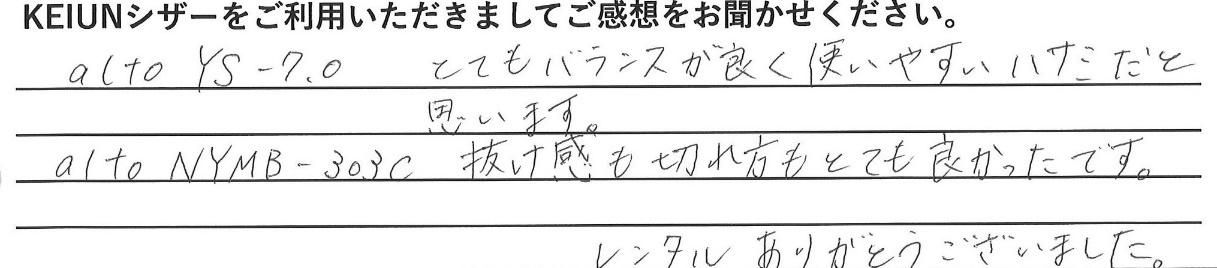 KEIUNシザーをご利用いただきましてご感想をお聞かせください。
alto YS-7.0 とてもバランスが良く使いやすいハサミだと
思います。
alto NYMB-303C 抜け感も切れ方もとても良かったです。
レンタルありがとうございました。